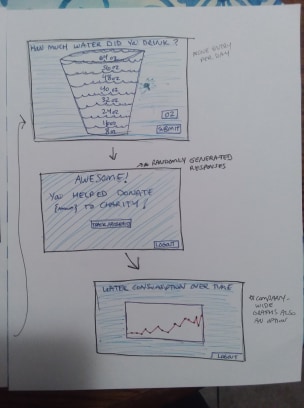 HOW MUCH WATER DID YOU DRINK?
64 oz
56 oz
48 oz
40 oz
32 oz
24 oz
16 oz
8 oz
OZ
SUBMIT
ENTRY
PER DAY
* RANDOMLY GENERATED
RESPONSES
AWESOME!
YOU HELPED DONATE
TO CHARITY!
TRACK PROGRESS
LOGOUT
WATER CONSUMPTION OVER TIME
LOGOUT
* COMPANY-
WIDE
GRAPHS ALSO
AN OPTION